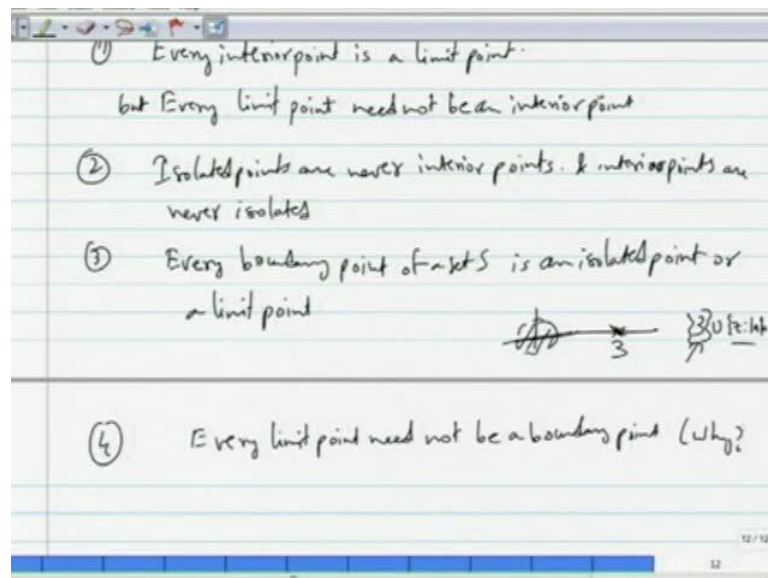 (1) Every interior point is a limit point.
but Every limit point need not be an interior point
(2) Isolated points are never interior points. & interior points are
never isolated
(3) Every boundary point of a set S is an isolated point or
a limit point
3
{3} ∪ {z: |z|
(4) Every limit point need not be a boundary point (Why?
12/12
12